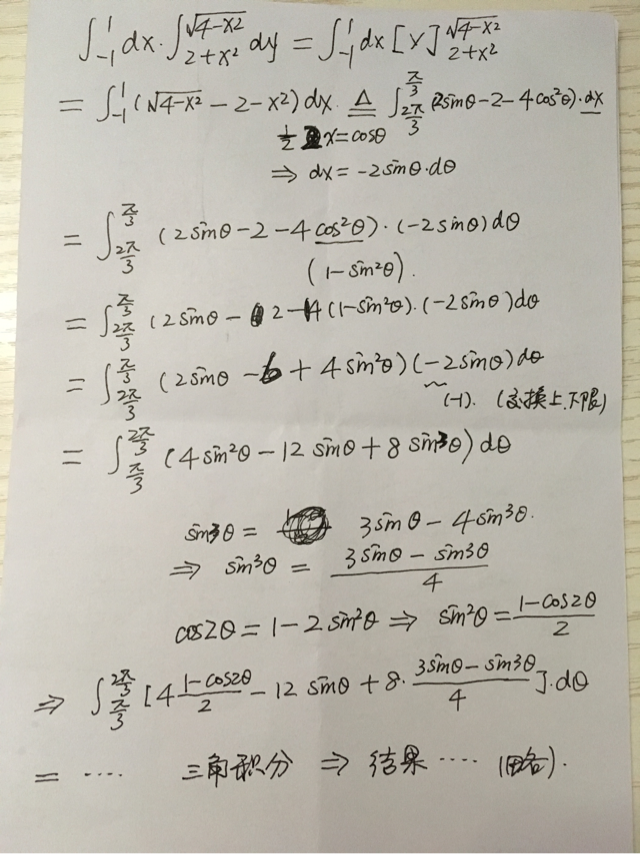 ∫_{-1}^{1} dx · ∫_{2+x²}^{√(4-x²)} dy = ∫_{-1}^{1} dx [y]_{2+x²}^{√(4-x²)}
= ∫_{-1}^{1} (√(4-x²) - 2 - x²) dx ≜ ∫_{2π/3}^{π/3} (2sinθ - 2 - 4cos²θ) · dx
½ x = cosθ
⇒ dx = -2sinθ·dθ
= ∫_{2π/3}^{π/3} (2sinθ - 2 - 4cos²θ) · (-2sinθ) dθ
(1 - sin²θ).
= ∫_{2π/3}^{π/3} (2sinθ - 2 - 4(1-sin²θ) · (-2sinθ) dθ
= ∫_{2π/3}^{π/3} (2sinθ - 6 + 4sin²θ)(-2sinθ) dθ
(-1). (交换上.下限)
= ∫_{π/3}^{2π/3} (4sin²θ - 12sinθ + 8sin³θ) dθ
sin3θ = 3sinθ - 4sin³θ.
⇒ sin³θ = (3sinθ - sin3θ)/4
cos2θ = 1 - 2sin²θ ⇒ sin²θ = (1-cos2θ)/2
⇒ ∫_{π/3}^{2π/3} [4 (1-cos2θ)/2 - 12sinθ + 8· (3sinθ - sin3θ)/4] · dθ
= ···· 三角积分 ⇒ 结果 ···· (略).